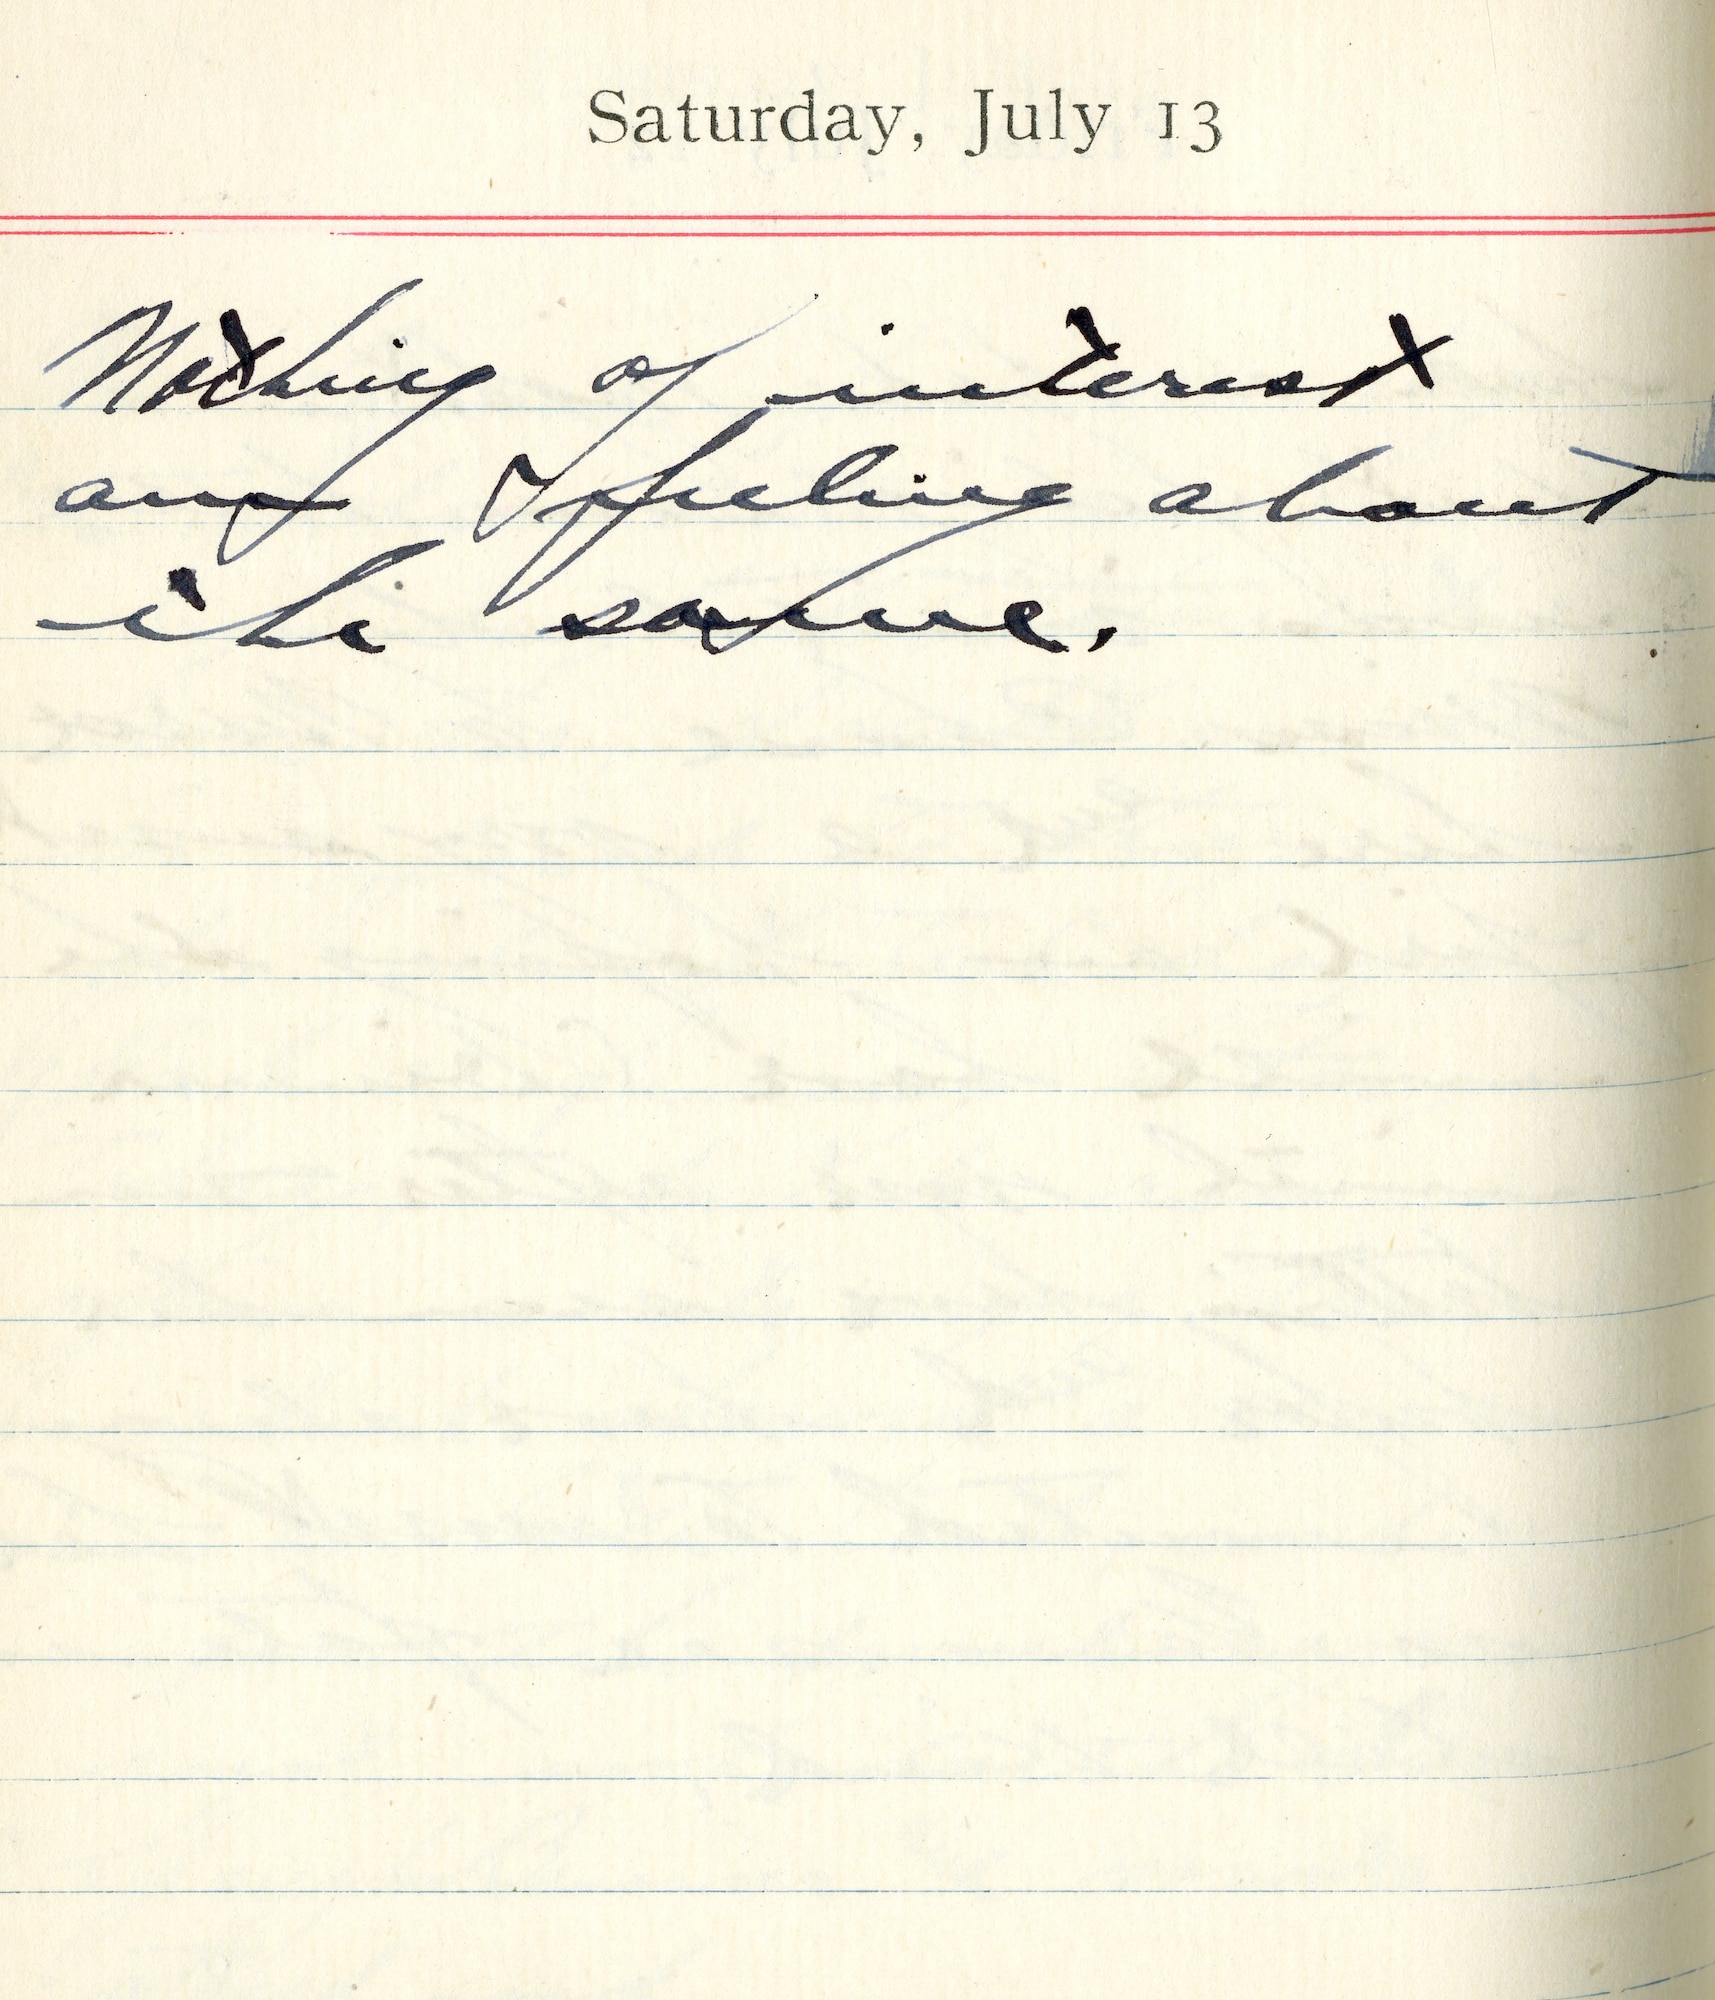 Saturday, July 13
Nothing of interest
am feeling about
the same.